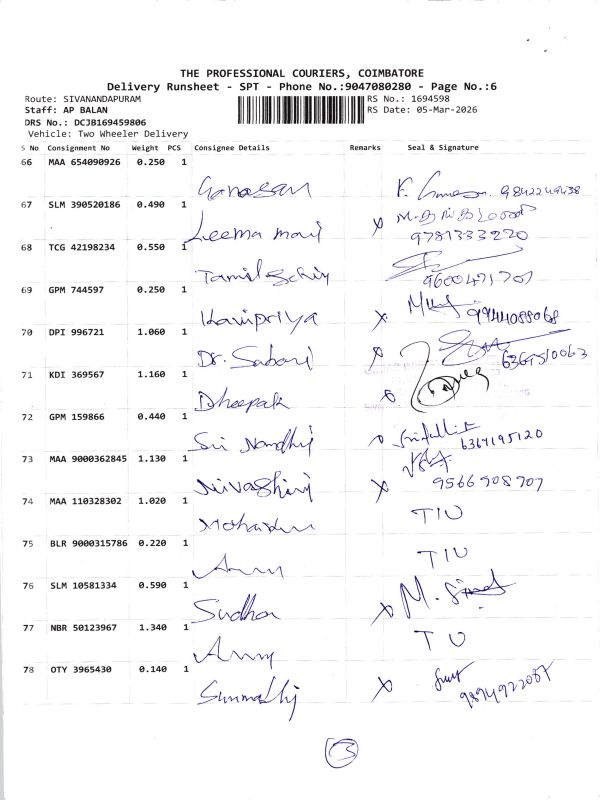 THE PROFESSIONAL COURIERS, COIMBATORE
Delivery Runsheet - SPT - Phone No.:9047080280 - Page No.:6
Route: SIVANANDAPURAM
RS No.: 1694598
Staff: AP BALAN
RS Date: 05-Mar-2026
DRS No.: DCJB169459806
Vehicle: Two Wheeler Delivery
S No Consignment No Weight PCS Consignee Details Remarks Seal & Signature
66 MAA 654090926 0.250 1
Ganesan 9842249438
67 SLM 390520186 0.490 1
Leema mary x
9781333220
68 TCG 42198234 0.550 1
Tamil Selvi 9600471707
69 GPM 744597 0.250 1
Kavipriya x 9944088068
70 DPI 996721 1.060 1
Dr. Sabari x 6369510063
71 KDI 369567 1.160 1
Dheepak x
72 GPM 159866 0.440 1
Sri Nandhj 6364195120
73 MAA 9000362845 1.130 1
Nivashinj x 9566908707
74 MAA 110328302 1.020 1
TIU
75 BLR 9000315786 0.220 1
TIU
76 SLM 10581334 0.590 1
Sudha x
77 NBR 50123967 1.340 1
T U
78 OTY 3965430 0.140 1
x 9894922087
3